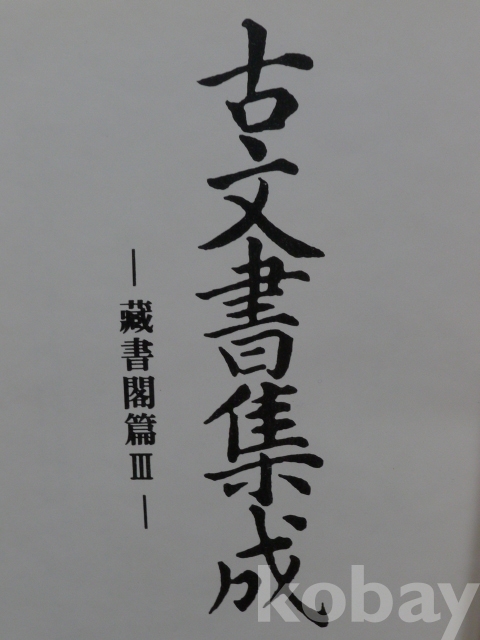 古文書集成
— 藏書閣篇Ⅲ —
kobay